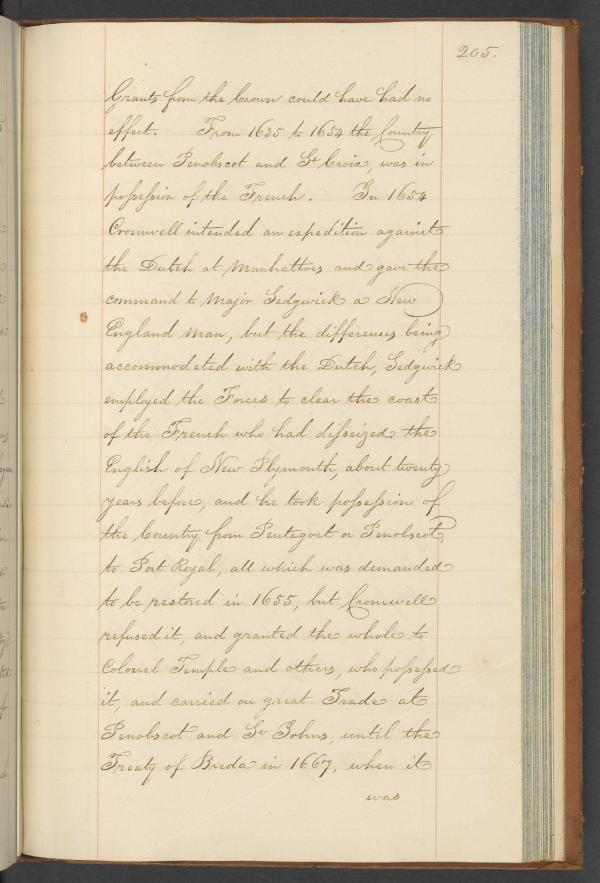 205.
Grants from the Crown could have had no
effect. From 1635 to 1654 the Country
between Penobscot and St Croix, was in
possession of the French. In 1654
Cromwell intended an expedition against
the Dutch at Manhattoes and gave the
command to Major Sedgwick a New
England Man, but the differences being
accommodated with the Dutch, Sedgwick
employed the Forces to clear the coast
of the French who had disseized the
English of New Plymouth, about twenty
years before, and he took possession of
the Country from Pentagoet or Penobscot,
to Port Royal, all which was demanded
to be restored in 1655, but Cromwell
refused it, and granted the whole to
Colonel Temple and others, who possessed
it, and carried on great Trade at
Penobscot and St Johns, until the
Treaty of Breda in 1667, when it
was